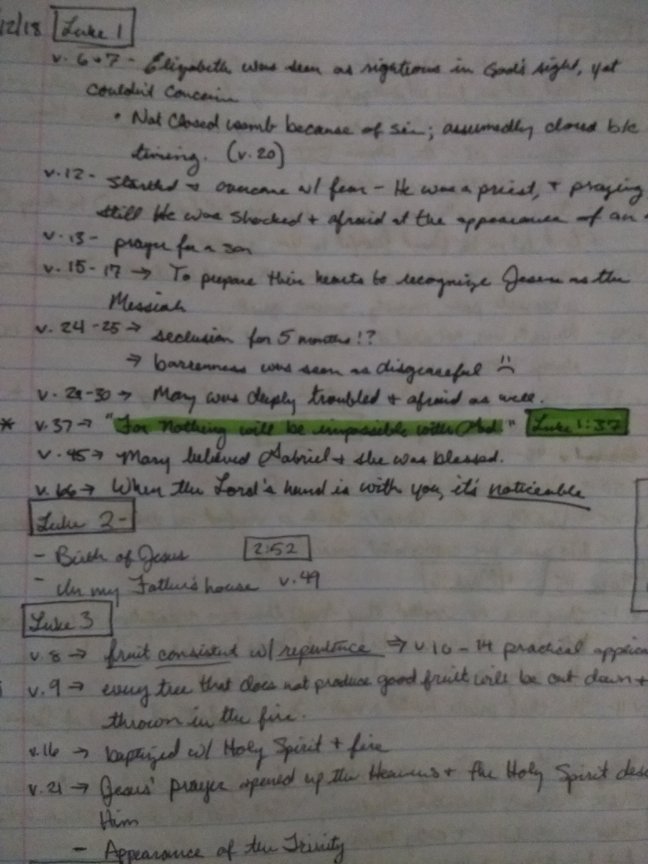 12/18 Luke 1
v. 6+7 - Elizabeth was seen as righteous in God's sight, yet
couldn't conceive
• Not closed womb because of sin; assumedly closed b/c
timing. (v. 20)
v. 12 - startled + overcome w/ fear - He was a priest, + praying
still He was shocked + afraid at the appearance of an
v. 13 - prayer for a son
v. 15-17 → To prepare their hearts to recognize Jesus as the
Messiah
v. 24-25 → seclusion for 5 months!?
→ barrenness was seen as disgraceful
v. 29-30 → Mary was deeply troubled + afraid as well.
* v. 37 → "For nothing will be impossible with God." Luke 1:37
v. 45 → Mary believed Gabriel + she was blessed.
v. 66 → When the Lord's hand is with you, it's noticeable
Luke 2 -
- Birth of Jesus 2:52
- In my Father's house v. 49
Luke 3
v. 8 → fruit consistent w/ repentence → v. 10-14 practical applica
v. 9 → every tree that does not produce good fruit will be cut down +
thrown in the fire.
v. 16 → baptized w/ Holy Spirit + fire
v. 21 → Jesus' prayer opened up the Heavens + the Holy Spirit desc
Him
- Appearance of the Trinity